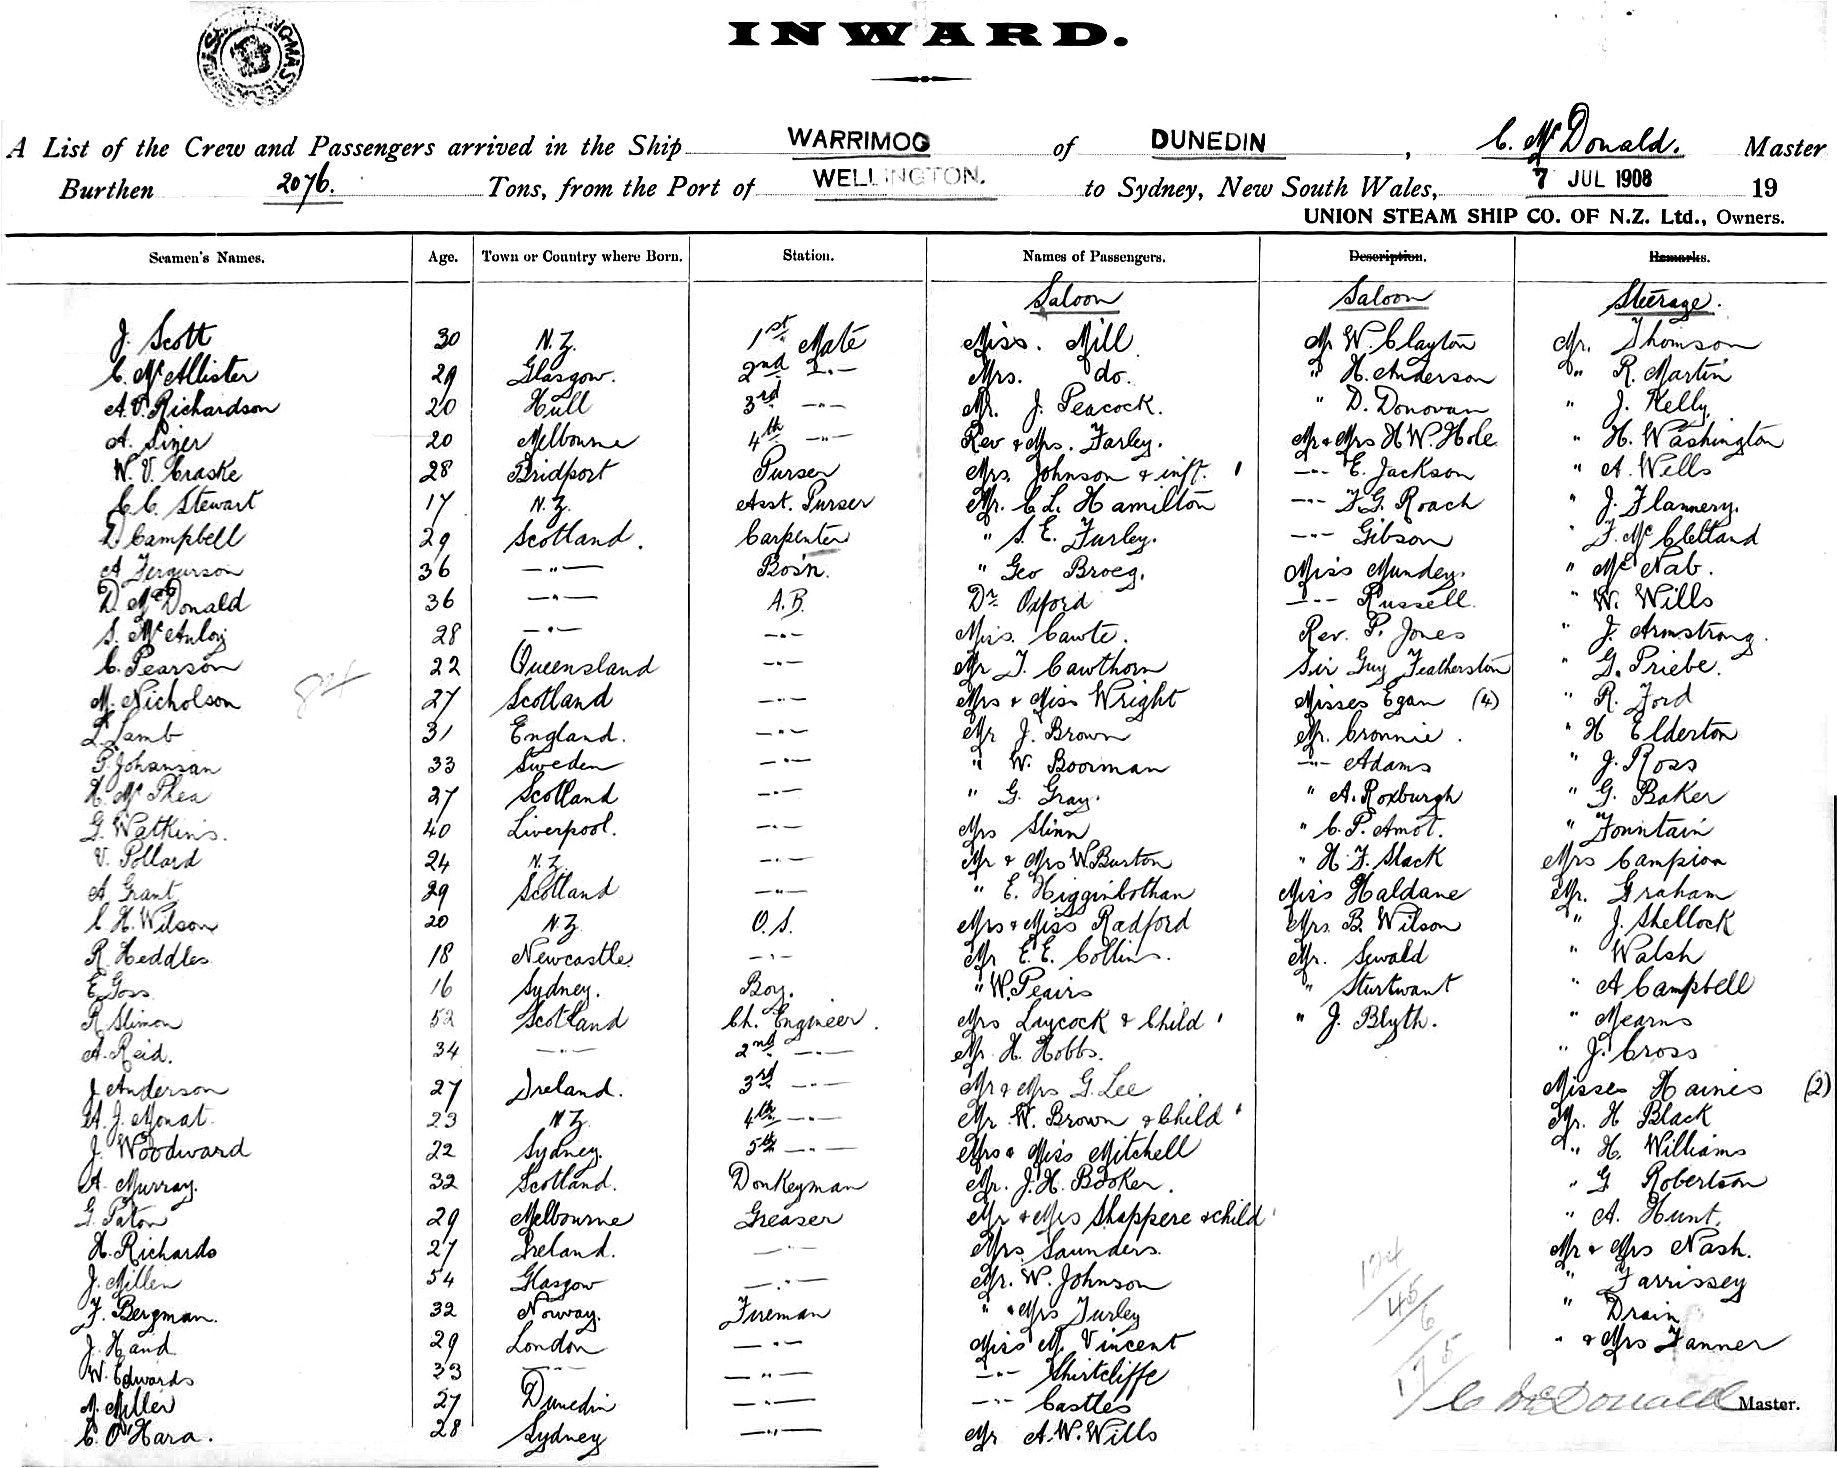 INWARD.
A List of the Crew and Passengers arrived in the Ship WARRIMOO of DUNEDIN, C. McDonald. Master
Burthen 2076. Tons, from the Port of WELLINGTON. to Sydney, New South Wales, 7 JUL 1908 19
UNION STEAM SHIP CO. OF N.Z. Ltd., Owners.
Seamen's Names. Age. Town or Country where Born. Station. Names of Passengers. Description. Remarks.
Saloon Saloon Steerage.
J. Scott 30 N.Z. 1st Mate Miss. Mill Mr W. Clayton Mr. Thomson
C. McAllister 29 Glasgow. 2nd -"- Mrs. do. " H. Anderson " R. Martin
A.V. Richardson 20 Hull 3rd -"- Mr. J. Peacock. " D. Donovan " J. Kelly
A. Sizer 20 Melbourne 4th -"- Rev & Mrs. Farley. Mr & Mrs H.W. Hole " H. Washington
W. V. Craske 28 Bridport Purser Mrs. Johnson & inft. -"- E. Jackson " A. Wells
C.C. Stewart 17 N.Z. Asst. Purser Mr. C.L. Hamilton -"- F.G. Roach " J. Flannery.
D Campbell 29 Scotland. Carpenter " S. E. Furley. -"- Gibson " J. McClelland
A Fergurson 36 -"- Bos'n. " Geo Broeg. Miss Mundey. " McNab.
D. McDonald 36 -"- A.B. Dr. Oxford -"- Russell. " W. Wills
S. McAuloy 28 -"- -"- Miss. Cawte. Rev. P. Jones " J. Armstrong.
C. Pearson 22 Queensland -"- Mr J. Cawthorn Sir Guy Featherston " G. Priebe.
M. Nicholson 27 Scotland -"- Mrs & Miss Wright Misses Egan (4) " R. Ford
L. Lamb 31 England. -"- Mr J. Brown Mr. Cronnie. " H Elderton
P. Johansan 33 Sweden -"- " W. Boorman -"- Adams " J. Ross
H. McPhea 27 Scotland -"- " G. Gray. " A. Roxburgh " G. Baker
G. Watkins. 40 Liverpool. -"- Mrs Slinn " C. P. Amot. " Fountain
V. Pollard 24 N.Z. -"- Mr & Mrs W. Burton " H. F. Slack Mrs Campion
A. Grant 29 Scotland -"- " E. Higginbothan Miss Haldane Mr. Graham
C H. Wilson 20 N.Z. O.S. Mrs & Miss Radford Mrs. B. Wilson " J. Shellock
R. Heddles 18 Newcastle -"- Mr E. E. Collins. Mr. Sewald " Walsh
E. Goss 16 Sydney. Boy. " W. Peairs " Sturtwant " A Campbell
R. Slimon 52 Scotland Ch. Engineer. Mrs Laycock & Child " J. Blyth. " Mearns
A. Reid. 34 -"- 2nd -"- Mr. H. Hobbs. " J. Cross
J. Anderson 27 Ireland. 3rd -"- Mr & Mrs G. Lee Misses Haines (2)
A. J. Monat. 23 N.Z. 4th -"- Mr. W. Brown & Child Mr. H Black
J. Woodward 22 Sydney. 5th -"- Mrs & Miss Mitchell " H. Williams
A. Murray. 32 Scotland. Donkeyman Mr. J.H. Booker. " G Robertson
G. Paton 29 Melbourne Greaser Mr & Mrs Shappere & child " A. Hunt.
H. Richards 27 Ireland. -"- Mrs Saunders. Mr & Mrs Nash.
J. Millen 54 Glasgow -"- Mr. W. Johnson " Farrissey
F. Bergman. 32 Norway. Fireman " & Mrs Furley " Drain
J. Hand 29 London -"- Miss M. Vincent " & Mrs Fanner
W. Edwards 33 -"- -"- -"- Shirtcliffe
M. Miller 27 Dunedin -"- -"- Castles C McDonald Master.
C. O'Hara. 28 Sydney -"- Mr A.W. Wills